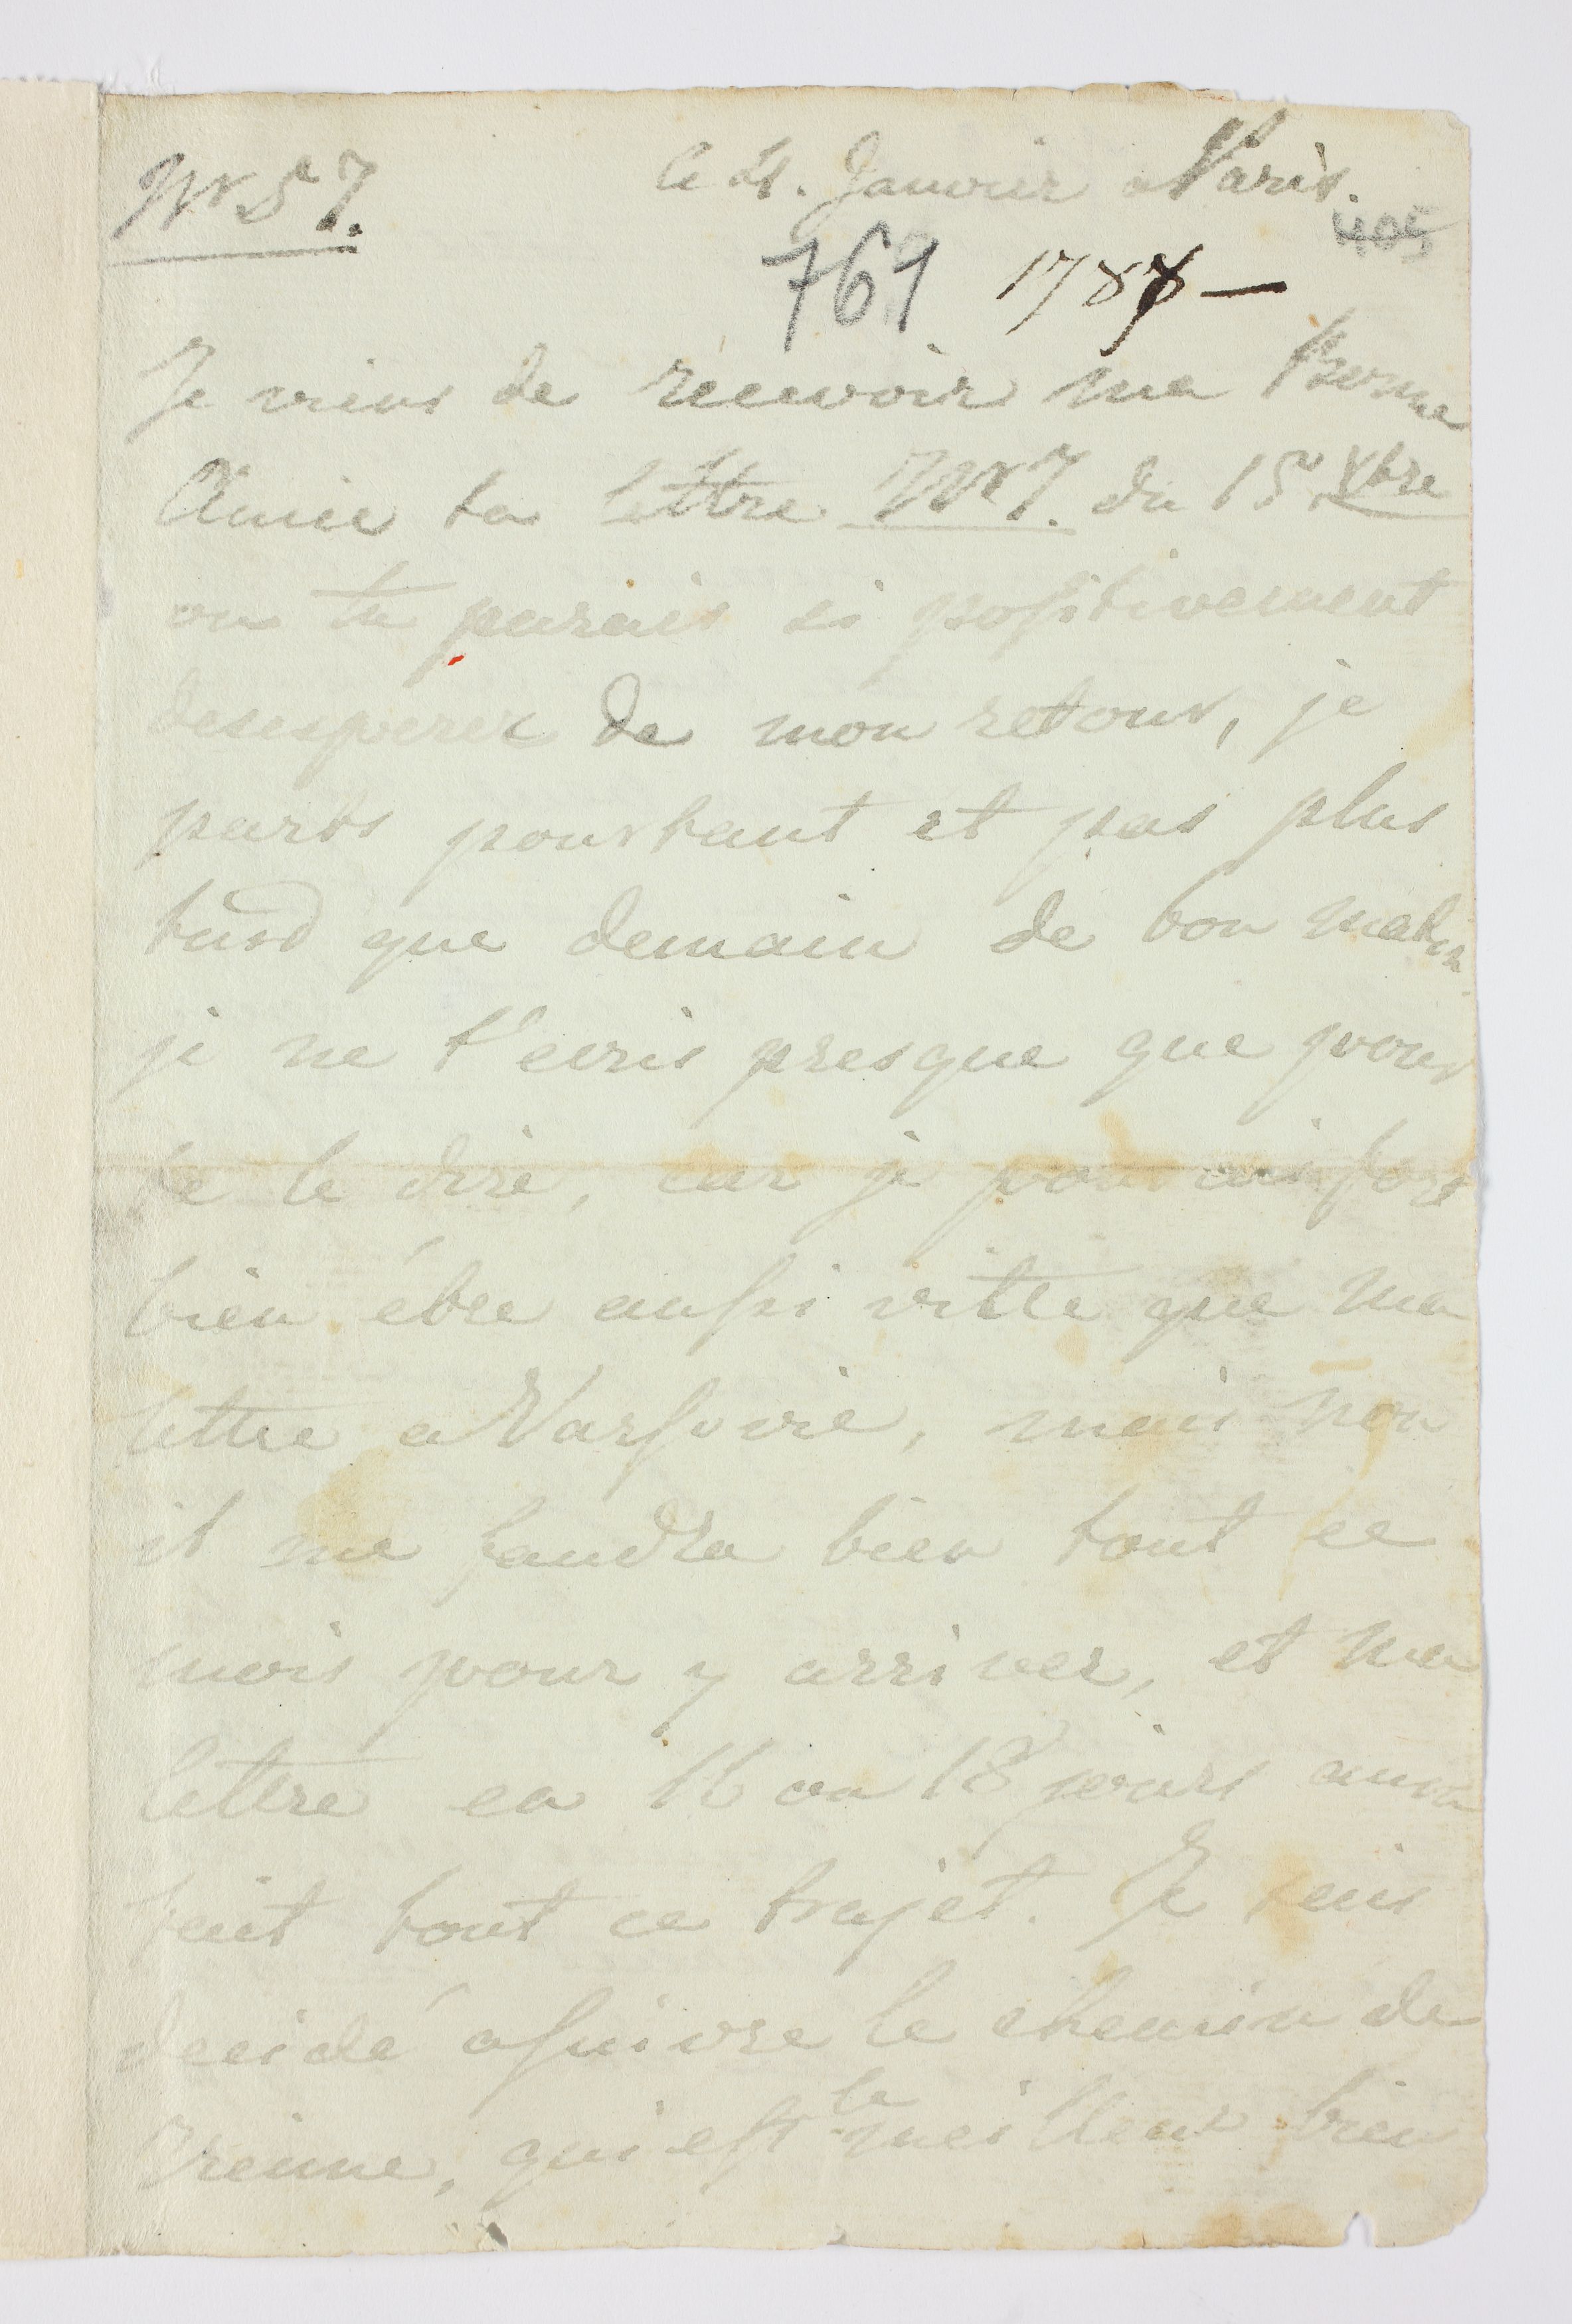 Nr 57. le 4. Janvier a Paris.
405
769 1788 —
Je viens de recevoir ma Bonne
Amie ta lettre Nr 7. du 15 Xbre
ou tu parais si positivement
desesperer de mon retour, je
parts pourtant et pas plus
tard que demain de bon matin
je ne t'ecris presque que pour
te le dire, car je pourrais fort
bien étre aussi vitte que ma
lettre a Varsovie, mais non
il me faudra bien tout ce
mois pour y arriver, et ma
lettre en 16 ou 18 jours aura
fait tout ce trajet. Je suis
decidé a suivre le chemin de
Vienne, qui est le meilleur bien